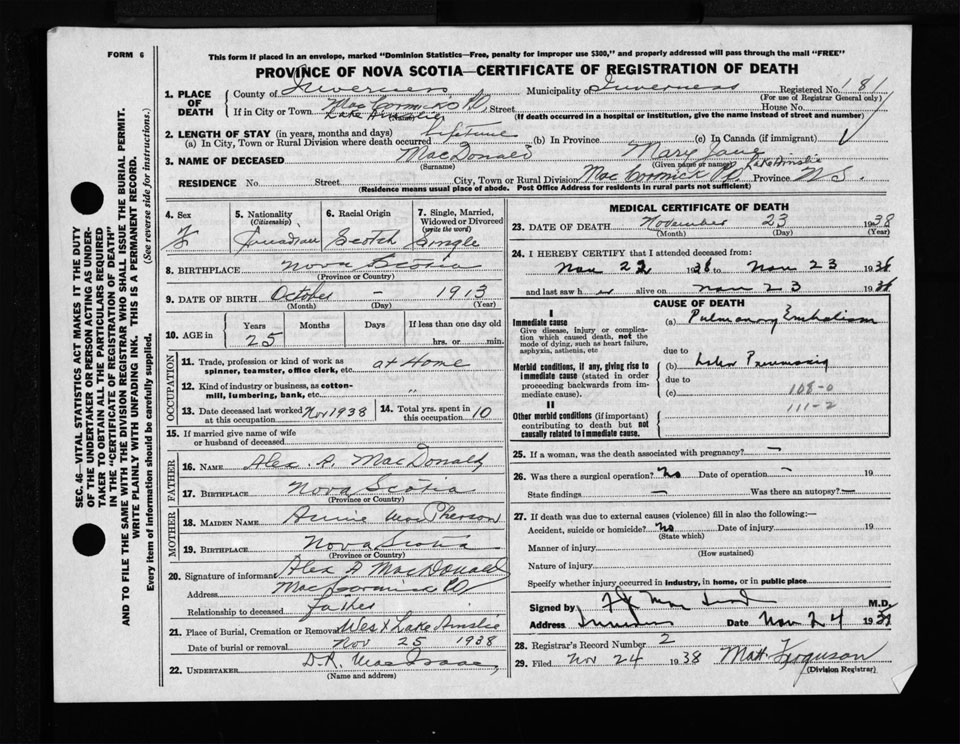 FORM 6
This form if placed in an envelope, marked "Dominion Statistics—Free, penalty for improper use $300," and properly addressed will pass through the mail "FREE"
PROVINCE OF NOVA SCOTIA—CERTIFICATE OF REGISTRATION OF DEATH
SEC. 46—VITAL STATISTICS ACT MAKES IT THE DUTY
OF THE UNDERTAKER OR PERSON ACTING AS UNDER-
TAKER TO OBTAIN ALL THE PARTICULARS REQUIRED
IN THE "CERTIFICATE OF REGISTRATION OF DEATH"
AND TO FILE THE SAME WITH THE DIVISION REGISTRAR WHO SHALL ISSUE THE BURIAL PERMIT.
WRITE PLAINLY WITH UNFADING INK. THIS IS A PERMANENT RECORD.
Every item of information should be carefully supplied. (See reverse side for instructions.)
1. PLACE OF DEATH County of Inverness Municipality of Inverness Registered No. 181
(For use of Registrar General only)
If in City or Town MacCormick's P.O. Street House No.
Lake Ainslie
(Name)
(If death occurred in a hospital or institution, give the name instead of street and number)
2. LENGTH OF STAY (in years, months and days)
(a) In City, Town or Rural Division where death occurred lifetime (b) In Province (c) In Canada (if immigrant)
3. NAME OF DECEASED MacDonald Mary Jane
(Surname) (Given name or names)
Lake Ainslie
RESIDENCE No. Street City, Town or Rural Division MacCormick P.O. Province N.S.
(Residence means usual place of abode. Post Office Address for residents in rural parts not sufficient)
4. Sex F
5. Nationality (Citizenship) Canadian
6. Racial Origin Scotch
7. Single, Married, Widowed or Divorced (write the word) Single
8. BIRTHPLACE Nova Scotia
(Province or Country)
9. DATE OF BIRTH October – 1913
(Month) (Day) (Year)
10. AGE in Years 25 Months Days If less than one day old
hrs. or min.
OCCUPATION
11. Trade, profession or kind of work as spinner, teamster, office clerk, etc. at Home
12. Kind of industry or business, as cotton-mill, lumbering, bank, etc. "
13. Date deceased last worked at this occupation Nov 1938
14. Total yrs. spent in this occupation 10
15. If married give name of wife or husband of deceased
FATHER
16. NAME Alex. A. MacDonald
17. BIRTHPLACE Nova Scotia
(Province or Country)
MOTHER
18. MAIDEN NAME Annie MacPherson
19. BIRTHPLACE Nova Scotia
(Province or Country)
20. Signature of informant Alex A MacDonald
Address MacCormick P.O.
Relationship to deceased father
21. Place of Burial, Cremation or Removal West Lake Ainslie
Date of burial or removal Nov 25 1938
22. UNDERTAKER D.R. MacIsaac
(Name and address)
MEDICAL CERTIFICATE OF DEATH
23. DATE OF DEATH November 23 1938
(Month) (Day) (Year)
24. I HEREBY CERTIFY that I attended deceased from:
Nov 22 1938 to Nov 23 1938
and last saw her alive on Nov 23 1938
CAUSE OF DEATH
I
Immediate cause
Give disease, injury or complication which caused death, not the mode of dying, such as heart failure, asphyxia, asthenia, etc
(a) Pulmonary Embolism
due to
Morbid conditions, if any, giving rise to immediate cause (stated in order proceeding backwards from immediate cause).
(b) Lobar Pneumonia
due to
(c) 108-0
111-2
II
Other morbid conditions (if important) contributing to death but not causally related to immediate cause.
25. If a woman, was the death associated with pregnancy? –
26. Was there a surgical operation? No Date of operation – 19
State findings – Was there an autopsy? –
27. If death was due to external causes (violence) fill in also the following:—
Accident, suicide or homicide? No Date of injury 19
(State which)
Manner of injury
(How sustained)
Nature of injury
Specify whether injury occurred in industry, in home, or in public place
Signed by M.D.
Address Inverness Date Nov 24 1938
28. Registrar's Record Number 2
29. Filed Nov 24 1938 Matt Ferguson
(Division Registrar)